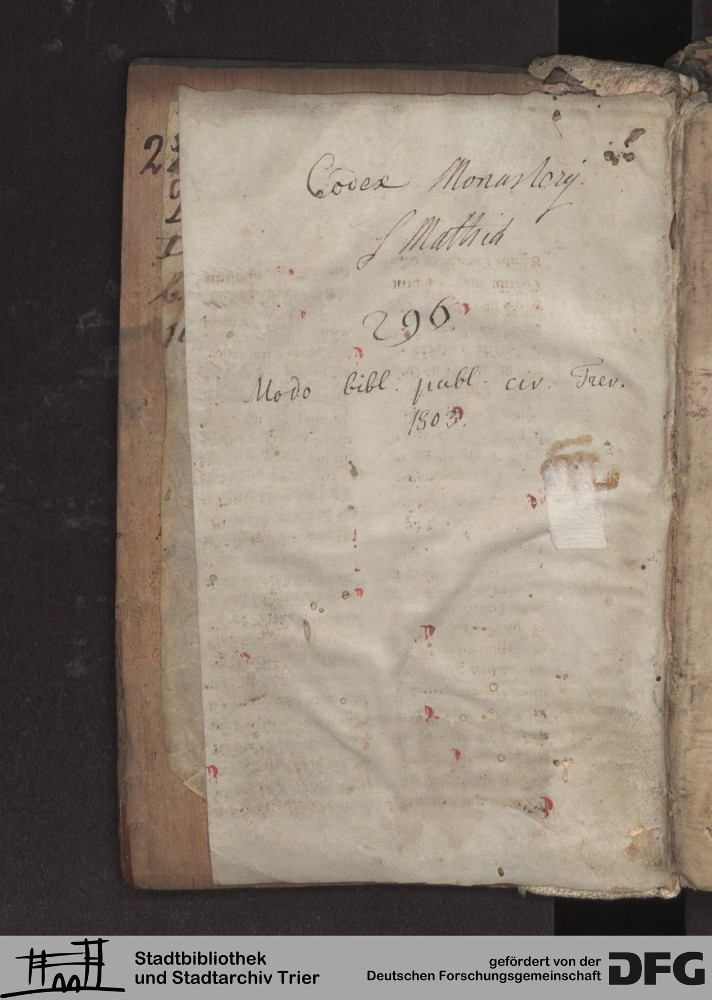 Codex Monasterij
S Mathiæ
296
Modo bibl. publ. civ. Trev.
1803.
Stadtbibliothek
und Stadtarchiv Trier
gefördert von der
Deutschen Forschungsgemeinschaft
DFG